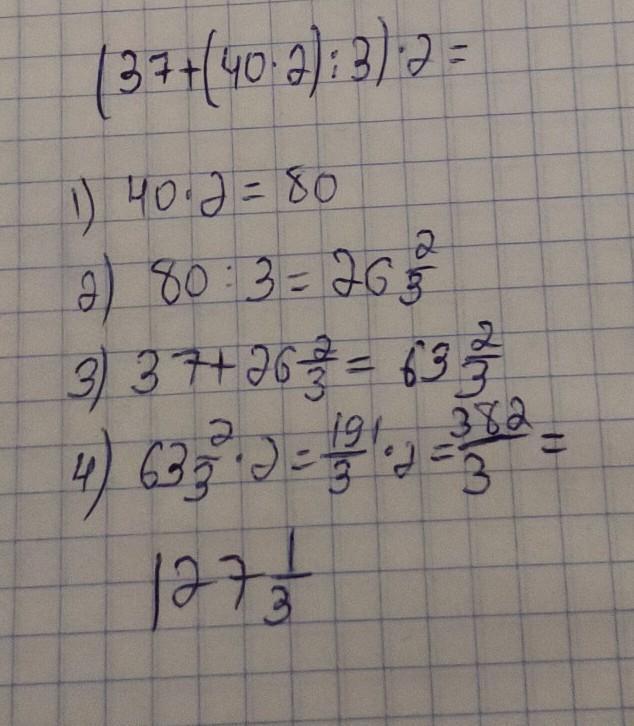 (37+(40·2):3)·2=
1) 40·2=80
2) 80:3=26 2/3
3) 37+26 2/3=63 2/3
4) 63 2/3·2=191/3·2=382/3=
127 1/3